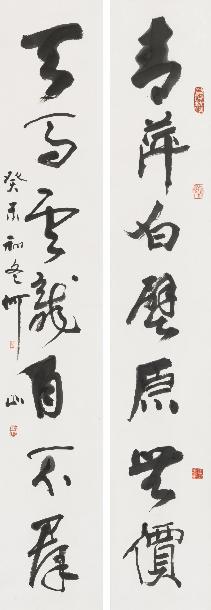 青萍白璧原無價
天馬雲龍自不群
癸未初冬
山